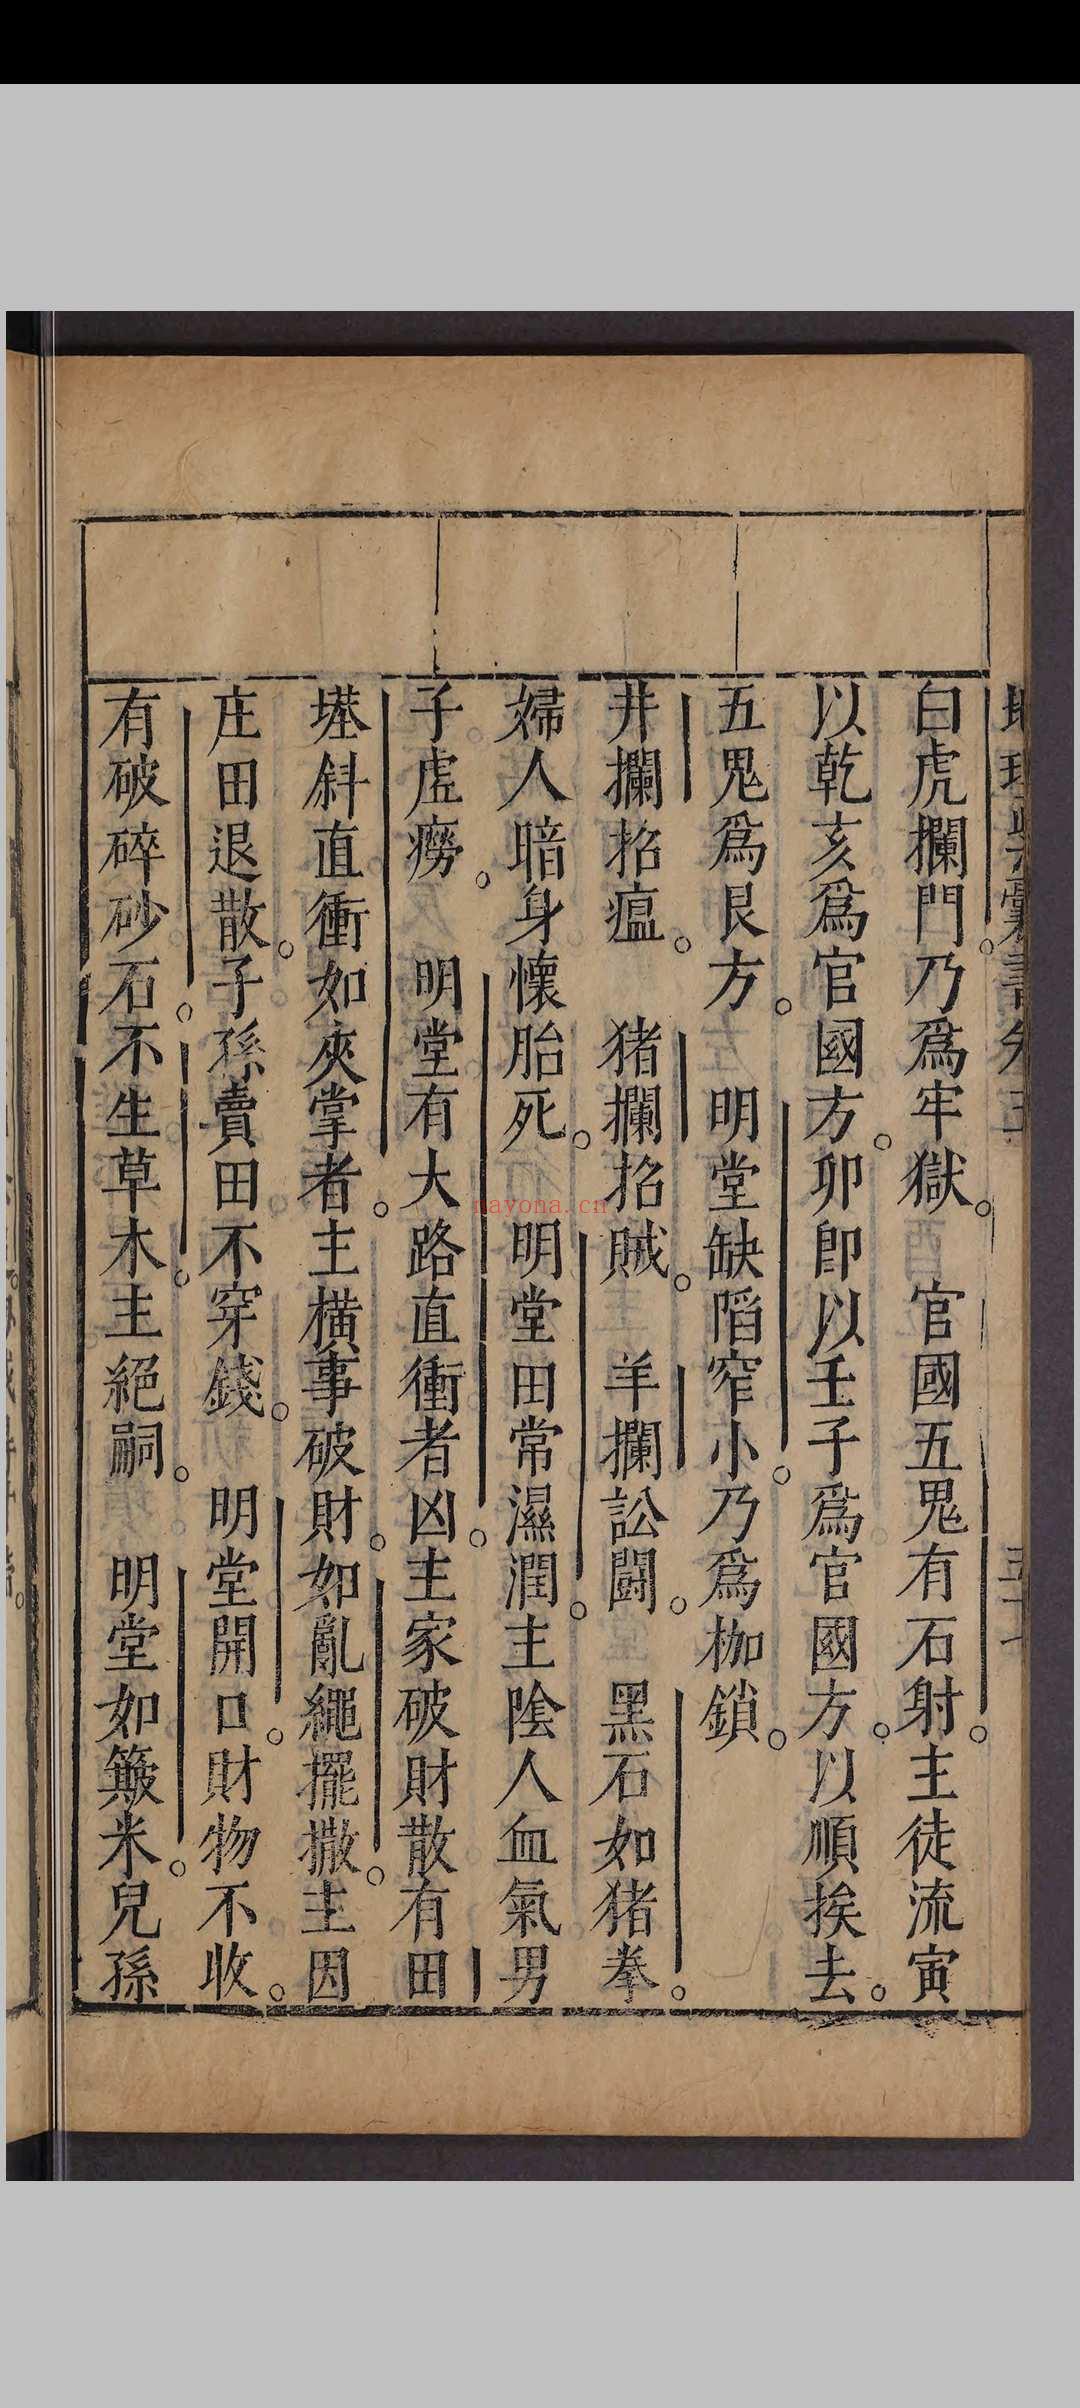 白虎攔門。乃爲牢獄。　官國五鬼有石射。主徒流寅
以乾亥爲官國方。卯卽以壬子爲官國方。以順挨去。
五鬼爲艮方。　明堂缺陷窄小。乃爲枷鎖。
井攔招瘟。　猪攔招賊。　羊攔訟鬭。　黑石如猪拳。
婦人暗身懷胎死。　明堂田常濕潤。主陰人血氣男
子虛癆。　明堂有大路直衝者凶。主家破財散有田
塟斜直衝如夾掌者。主橫事破財。如亂繩擺撒。主因
庄田退散。子孫賣田不穿錢。　明堂開口。財物不收。
有破碎砂石。不生草木。主絕嗣。　明堂如簸米。兒孫
nayona.cn